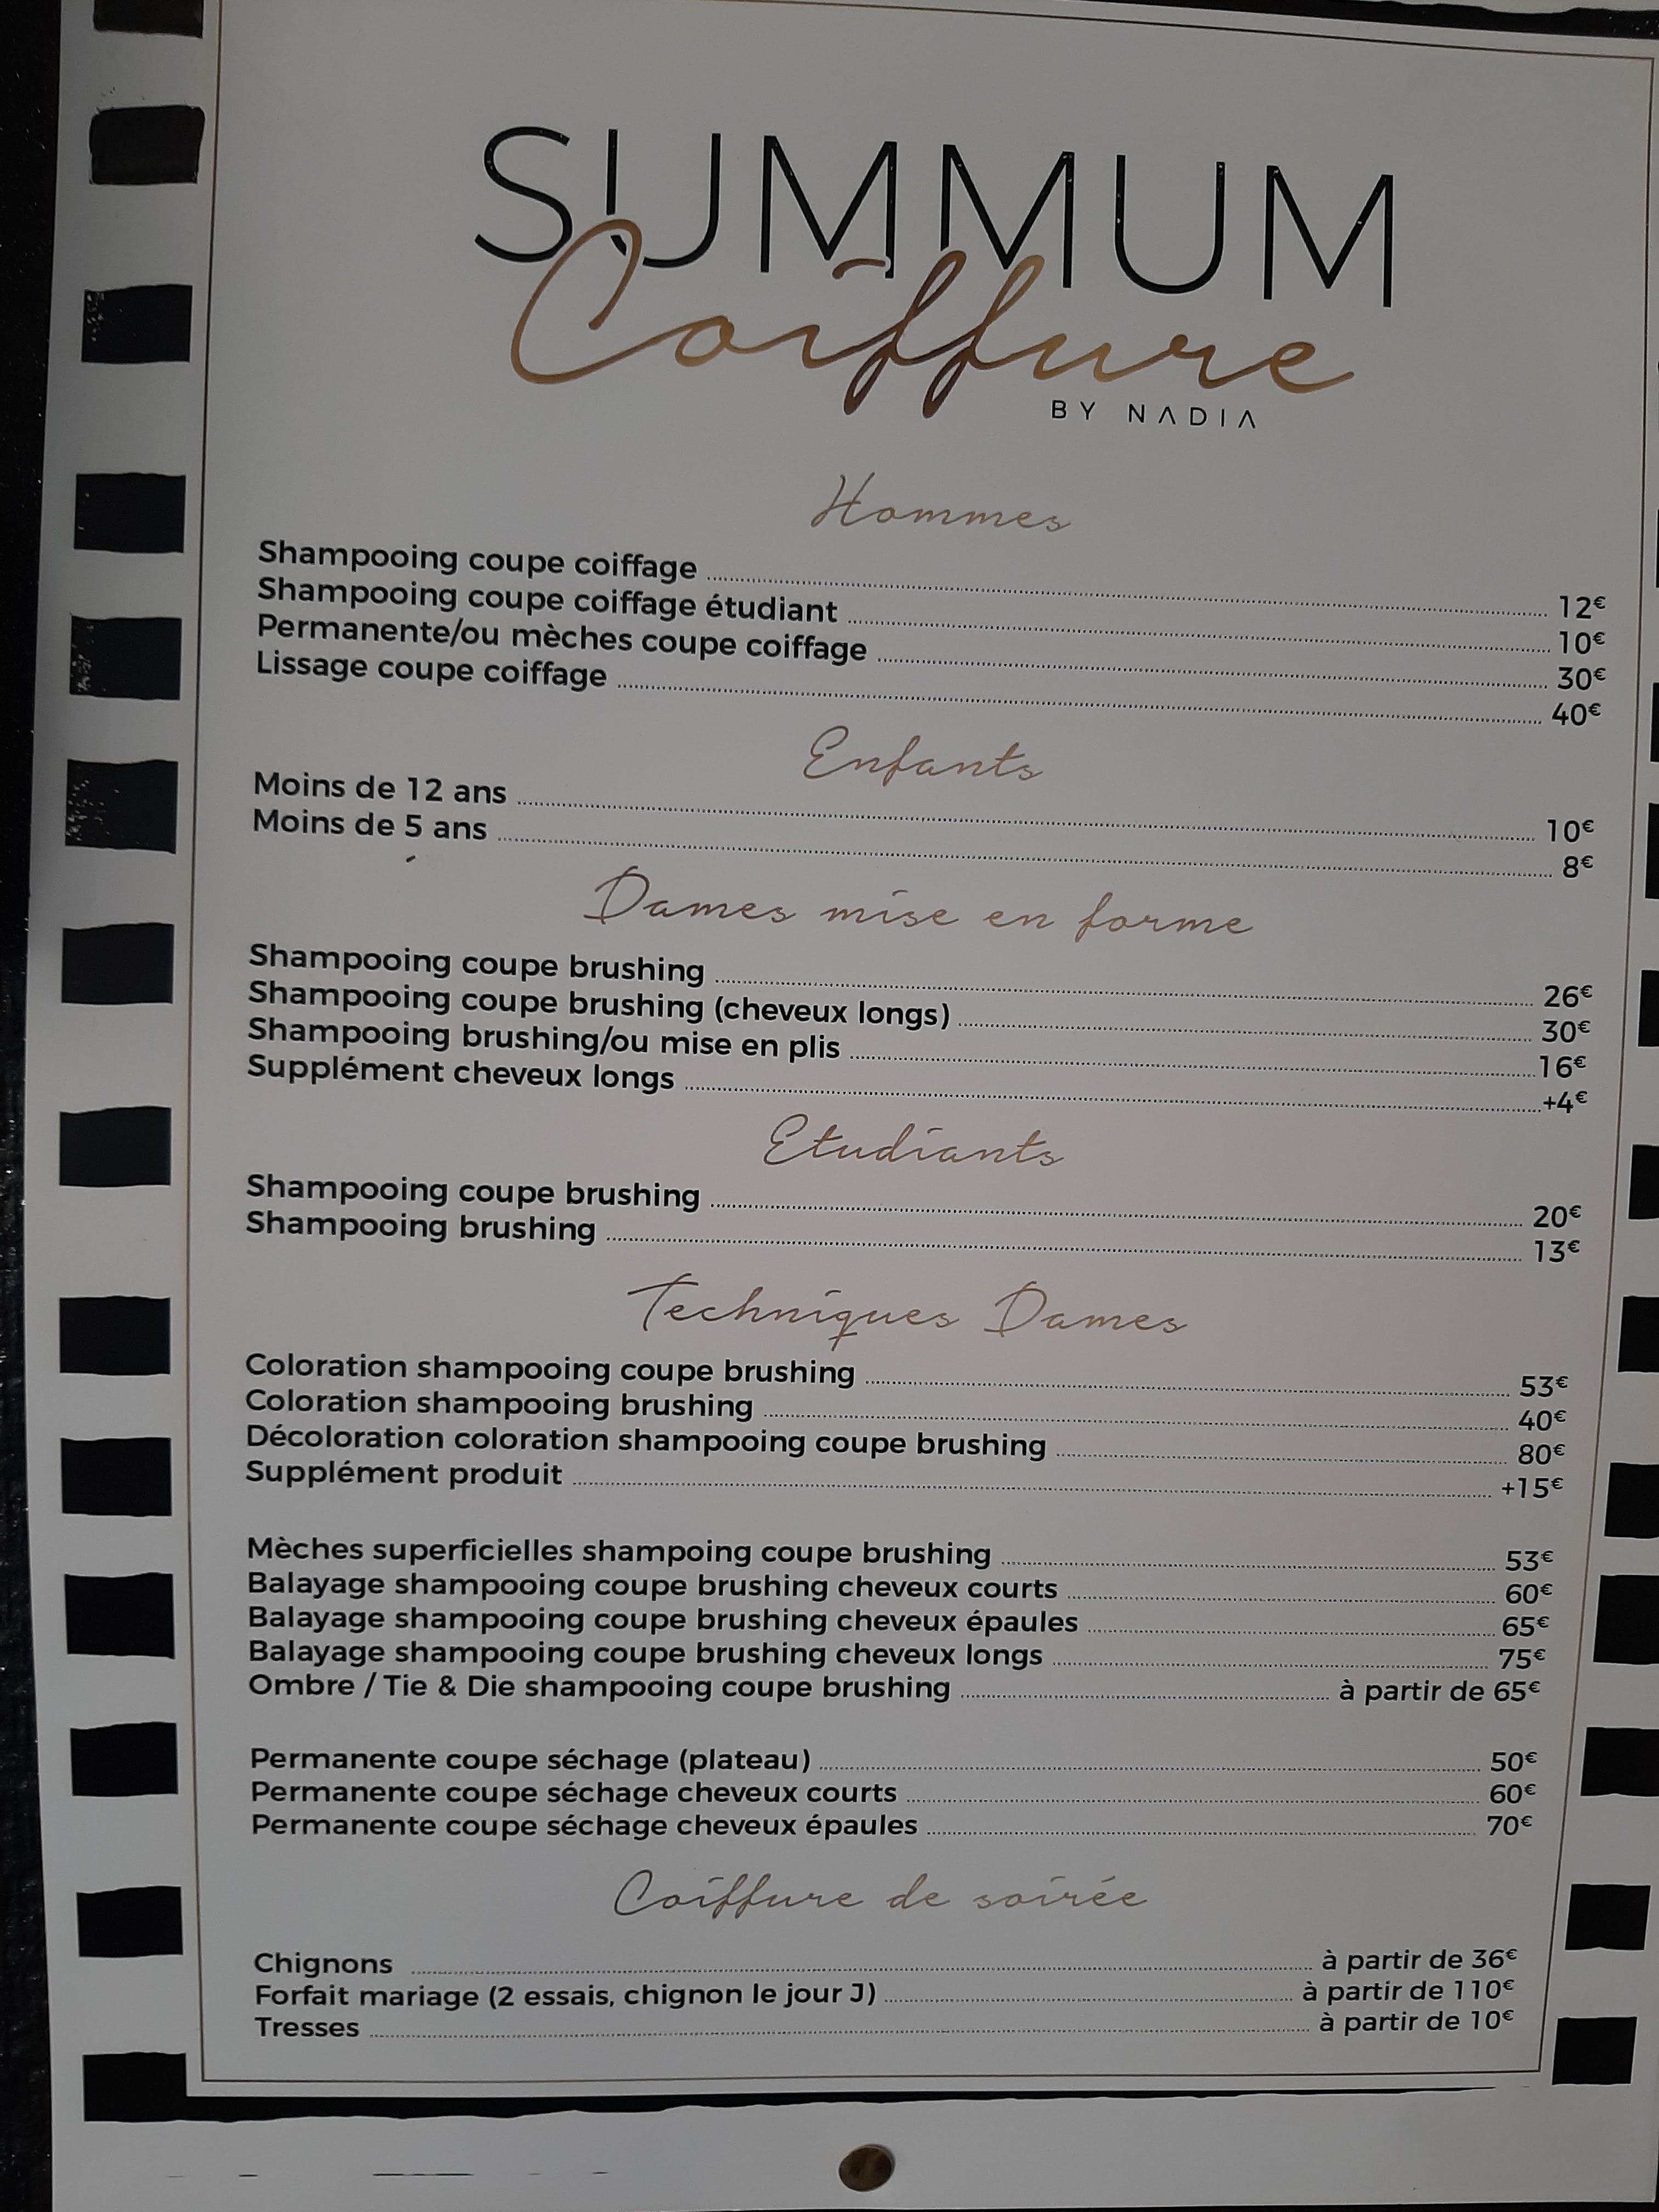 SUMMUM
Coiffure
BY NADIA
Hommes
Shampooing coupe coiffage 12€
Shampooing coupe coiffage étudiant 10€
Permanente/ou mèches coupe coiffage 30€
Lissage coupe coiffage 40€
Enfants
Moins de 12 ans 10€
Moins de 5 ans 8€
Dames mise en forme
Shampooing coupe brushing 26€
Shampooing coupe brushing (cheveux longs) 30€
Shampooing brushing/ou mise en plis 16€
Supplément cheveux longs +4€
Etudiants
Shampooing coupe brushing 20€
Shampooing brushing 13€
Techniques Dames
Coloration shampooing coupe brushing 53€
Coloration shampooing brushing 40€
Décoloration coloration shampooing coupe brushing 80€
Supplément produit +15€
Mèches superficielles shampoing coupe brushing 53€
Balayage shampooing coupe brushing cheveux courts 60€
Balayage shampooing coupe brushing cheveux épaules 65€
Balayage shampooing coupe brushing cheveux longs 75€
Ombre / Tie & Die shampooing coupe brushing à partir de 65€
Permanente coupe séchage (plateau) 50€
Permanente coupe séchage cheveux courts 60€
Permanente coupe séchage cheveux épaules 70€
Coiffure de soirée
Chignons à partir de 36€
Forfait mariage (2 essais, chignon le jour J) à partir de 110€
Tresses à partir de 10€